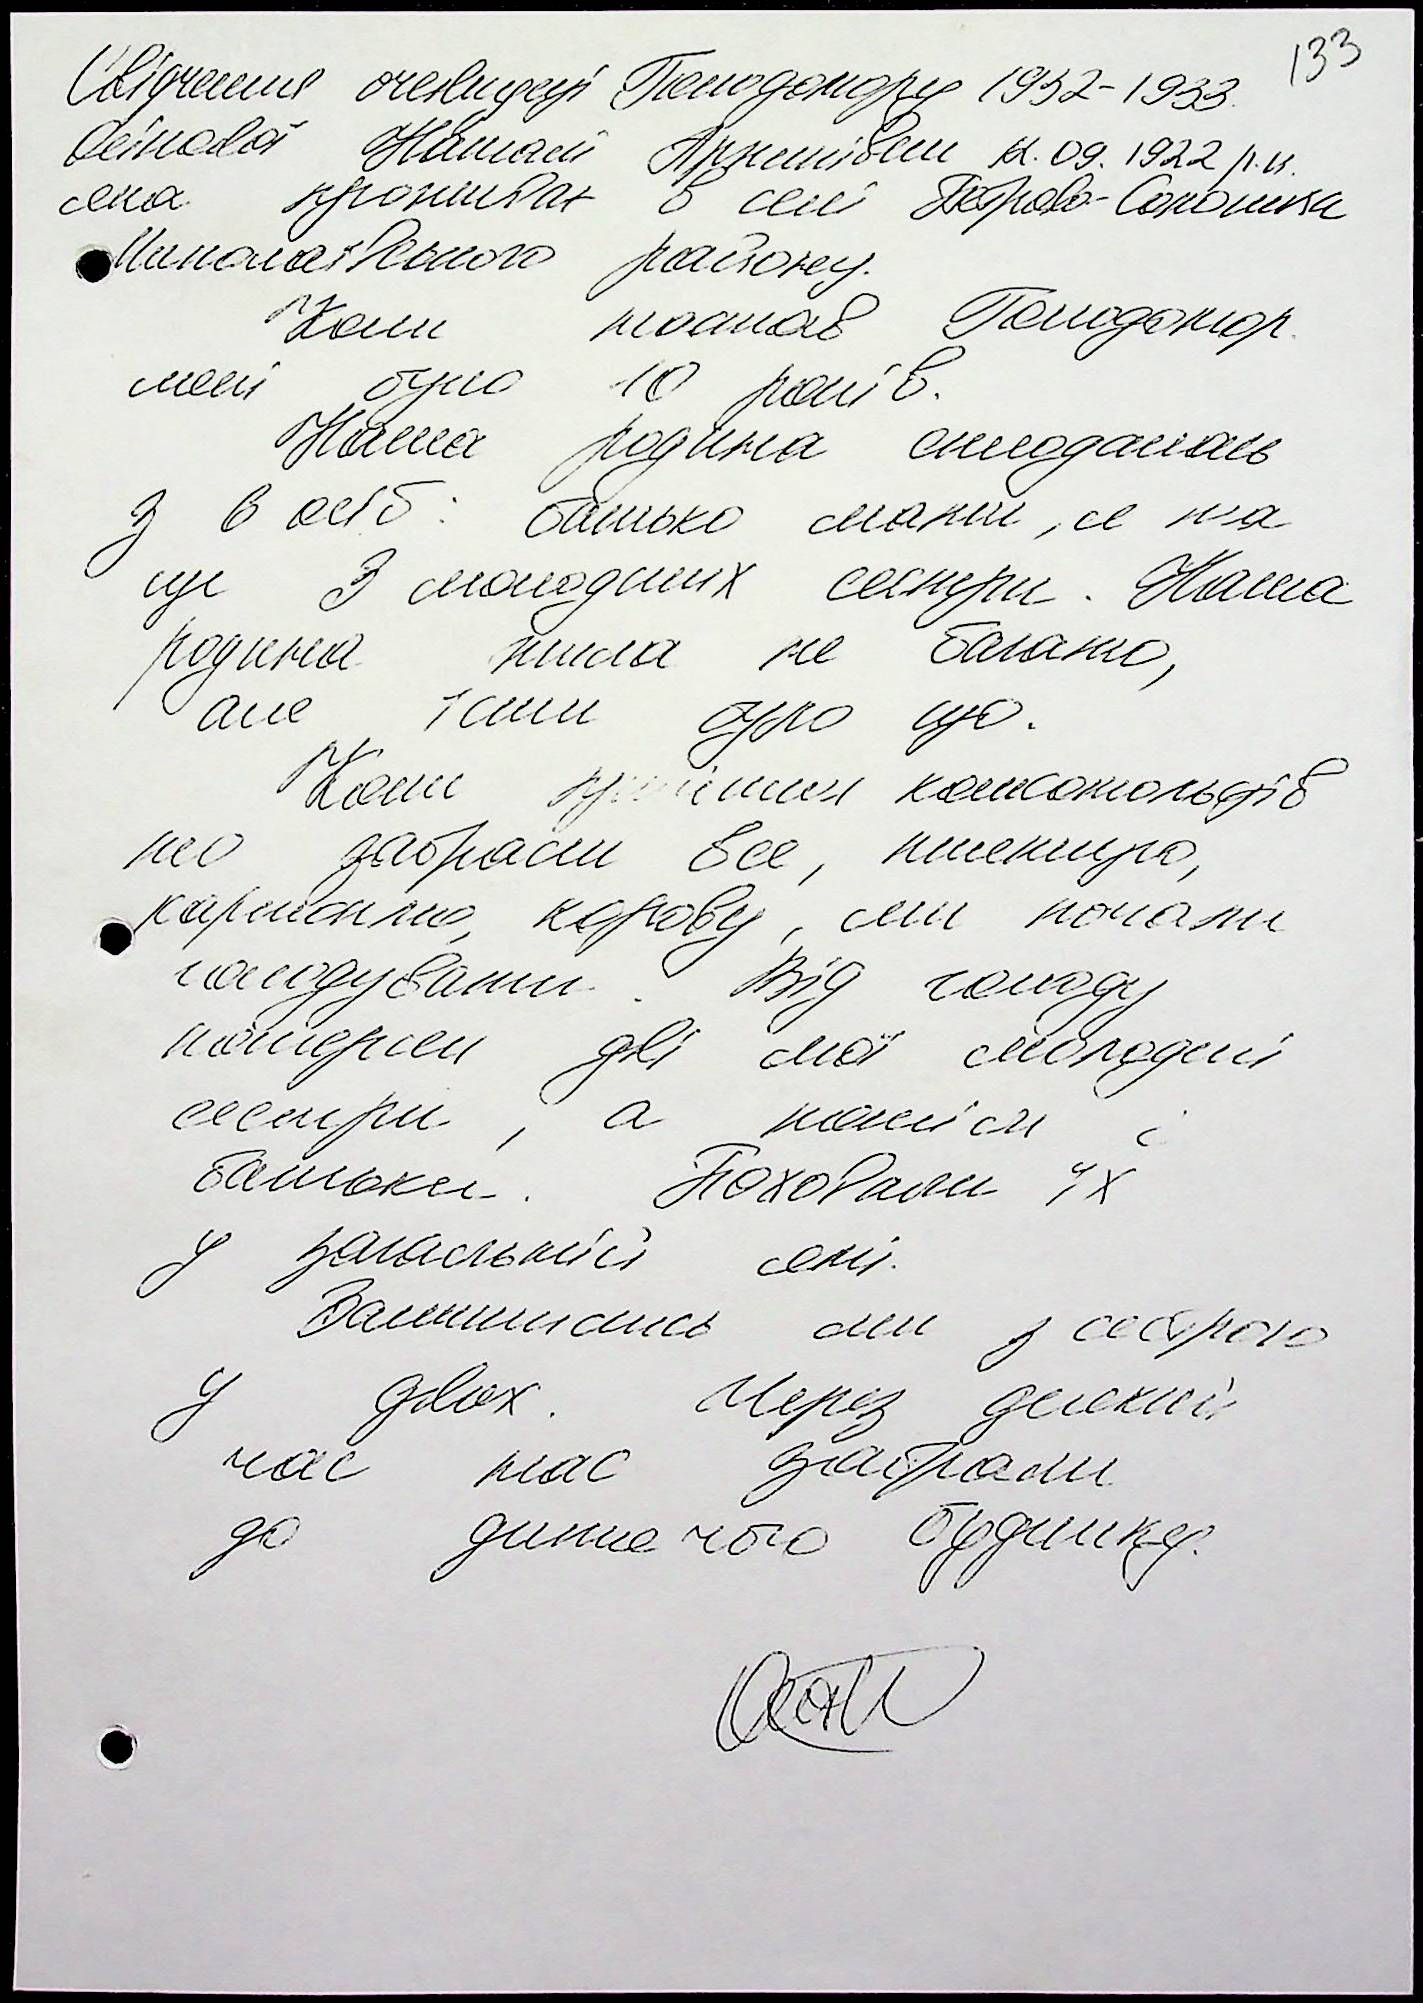 133
Свідчення очевидці Голодомору 1932-1933.
Наталі 09. 1922 р.н.
яка проживає в селі Петрово-Солониха
Миколаївського району.
Коли настав Голодомор
мені було 10 років.
Наша родина складалась
з 6 осіб: батько мати, я та
ще 3 молодших сестри. Наша
родина жила не багато,
але їсти було що.
Коли комсомольців
забрали все, пшеницю,
картоплю, корову, ми почали
голодувати. Від голоду
померли дві мої молодші
сестри, а потім і
батьки. Поховали їх
у загальній ямі.
Залишились ми з сестрою
у двох. Через деякий
час нас забрали
до дитячого будинку.